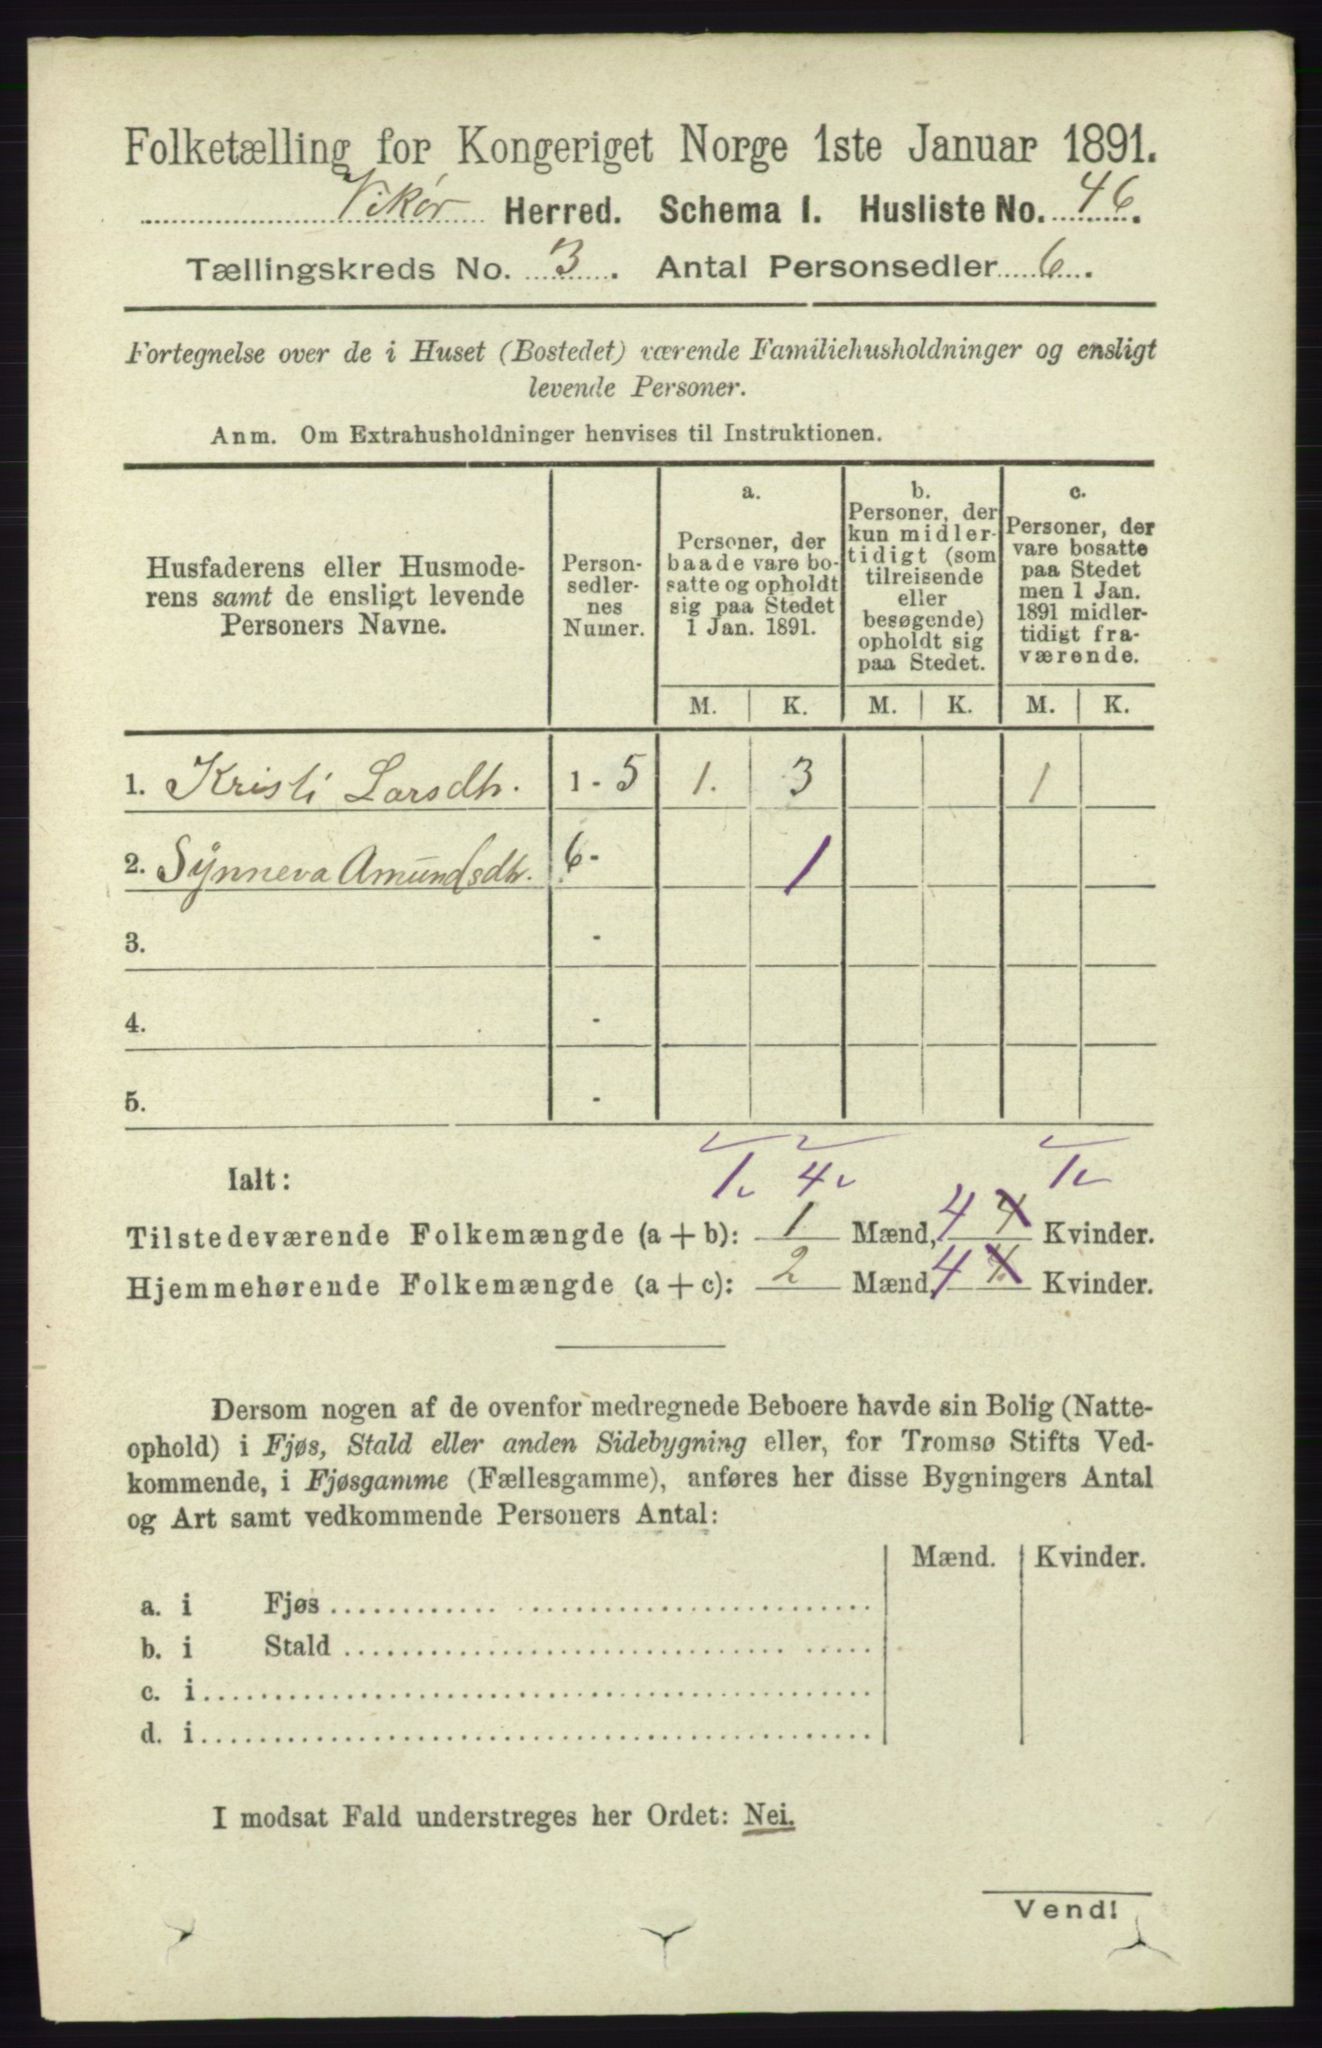 Folketælling for Kongeriget Norge 1ste Januar 1891.
Vikør Herred. Schema I. Husliste No. 46.
Tællingskreds No. 3. Antal Personsedler 6.
Fortegnelse over de i Huset (Bostedet) værende Familiehusholdninger og ensligt
levende Personer.
Anm. Om Extrahusholdninger henvises til Instruktionen.
Husfaderens eller Husmode-
rens samt de ensligt levende
Personers Navne.
Person-
sedler-
nes
Numer.
a.
Personer, der
baade vare bo-
satte og opholdt
sig paa Stedet
1 Jan. 1891.
b.
Personer, der
kun midler-
tidigt (som
tilreisende
eller
besøgende)
opholdt sig
paa Stedet.
c.
Personer, der
vare bosatte
paa Stedet
men 1 Jan.
1891 midler-
tidigt fra-
værende.
M. K. M. K. M. K.
1. Kristi Larsdtr. 1 - 5 1. 3 1
2. Synneva Amundsdtr. 6 - 1
3. -
4. -
5. -
Ialt: 1 4 1
Tilstedeværende Folkemængde (a + b): 1 Mænd, 4 4 Kvinder.
Hjemmehørende Folkemængde (a + c): 2 Mænd, 4 4 Kvinder.
Dersom nogen af de ovenfor medregnede Beboere havde sin Bolig (Natte-
ophold) i Fjøs, Stald eller anden Sidebygning eller, for Tromsø Stifts Ved-
kommende, i Fjøsgamme (Fællesgamme), anføres her disse Bygningers Antal
og Art samt vedkommende Personers Antal:
Mænd. Kvinder.
a. i Fjøs
b. i Stald
c. i
d. i
I modsat Fald understreges her Ordet: Nei.
Vend!